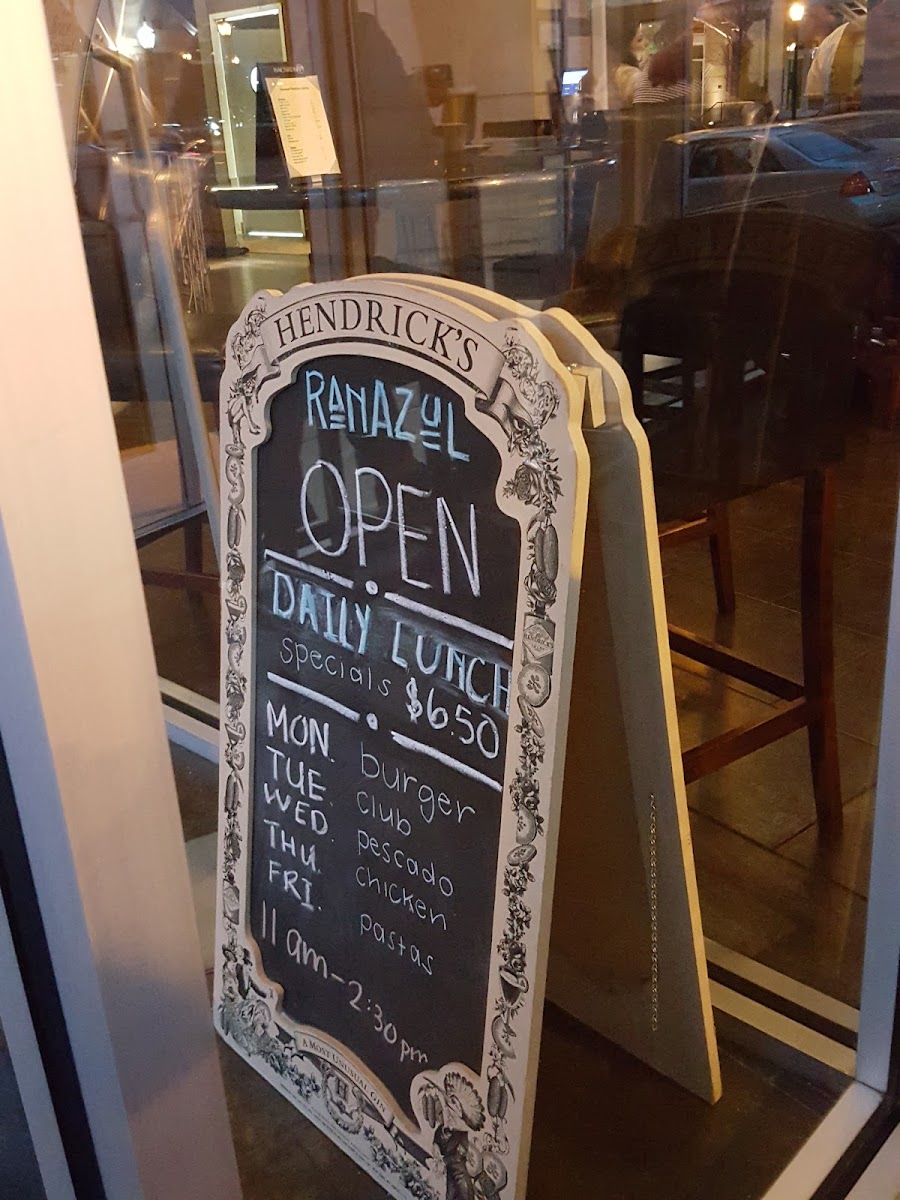 HENDRICK'S
RANAZUL
OPEN
DAILY LUNCH
Specials $6.50
MON. burger
TUE. club
WED. pescado
THU. chicken
FRI. pastas
11 am - 2:30 pm
A MOST UNUSUAL GIN